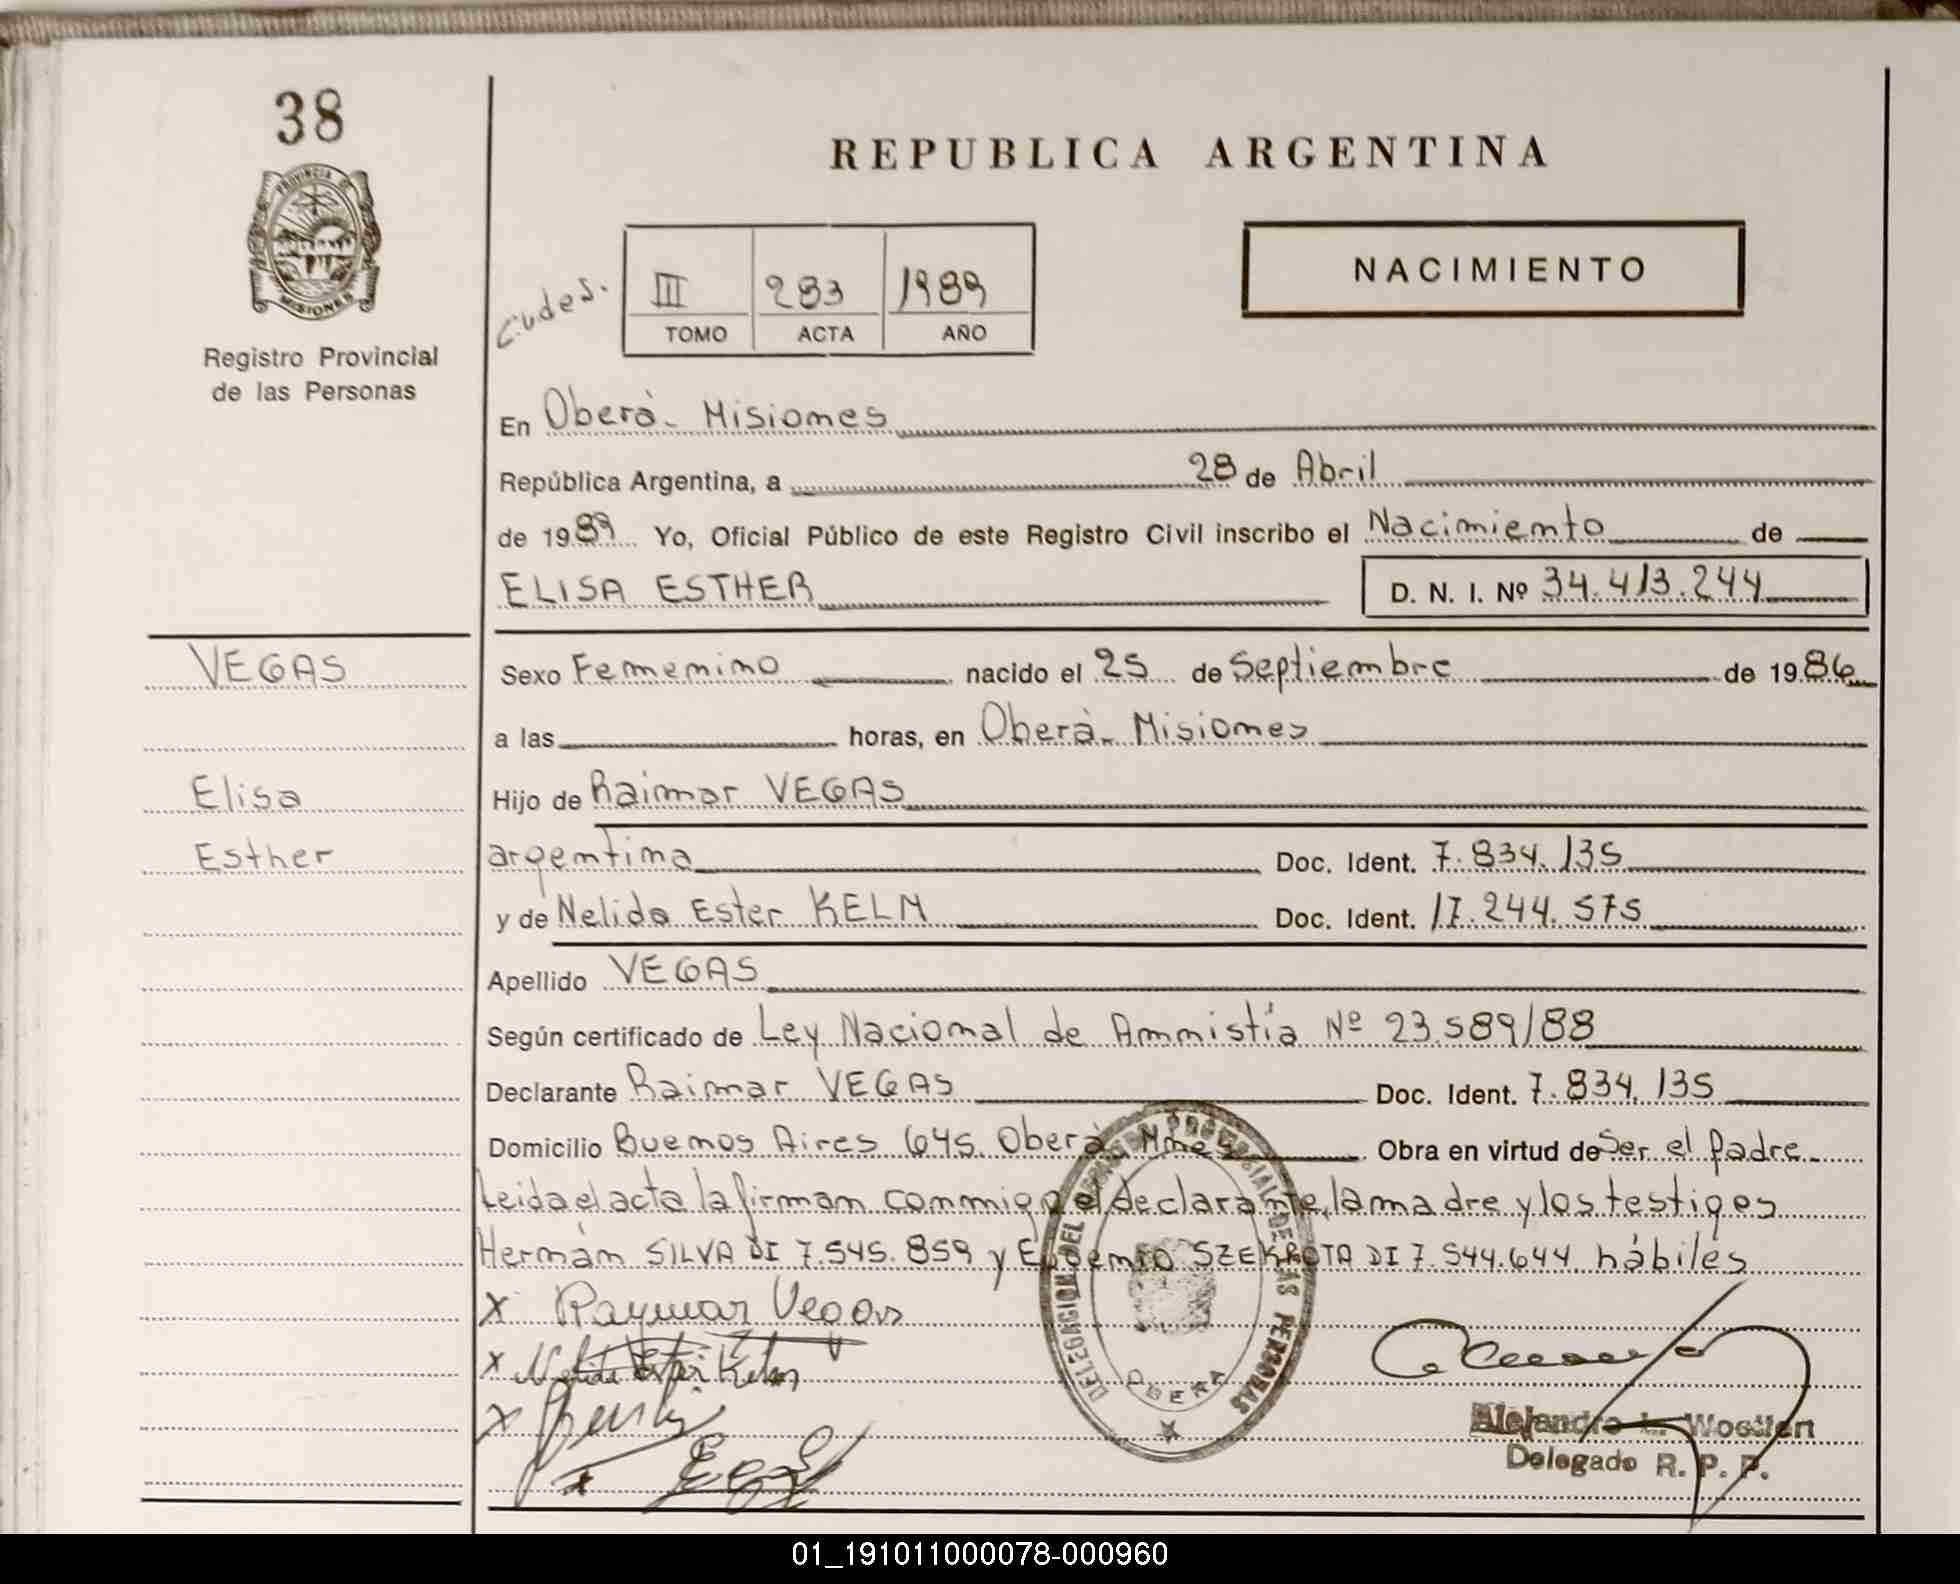 38
PROVINCIA DE
MISIONES
Registro Provincial
de las Personas
REPUBLICA ARGENTINA
NACIMIENTO
III 283 1989
TOMO ACTA AÑO
En Oberà - Misiones
República Argentina, a 28 de Abril
de 1989 Yo, Oficial Público de este Registro Civil inscribo el Nacimiento de
ELISA ESTHER D. N. I. Nº 34.413.244
VEGAS
Sexo Femenino nacido el 25 de Septiembre de 1986
a las horas, en Oberà - Misiones
Elisa
Hijo de Raimar VEGAS
Esther
argentina Doc. Ident. 7.834.135
y de Nelida Ester KELM Doc. Ident. 17.244.575
Apellido VEGAS
Según certificado de Ley Nacional de Amnistía Nº 23.589/88
Declarante Raimar VEGAS Doc. Ident. 7.834.135
Domicilio Buenos Aires 645. Oberà Mnes Obra en virtud de Ser el padre
Leida el acta la firman conmigo el declarante, la madre y los testigos
Hernán SILVA DI 7.545.859 y DI 7.544.644 hábiles
x Raymar Vegas
x Nelida Ester Kelm
x
DELEGACION DEL REGISTRO PROVINCIAL DE LAS PERSONAS
OBERA
Alejandro L.
Delegado R. P. P.
01_191011000078-000960